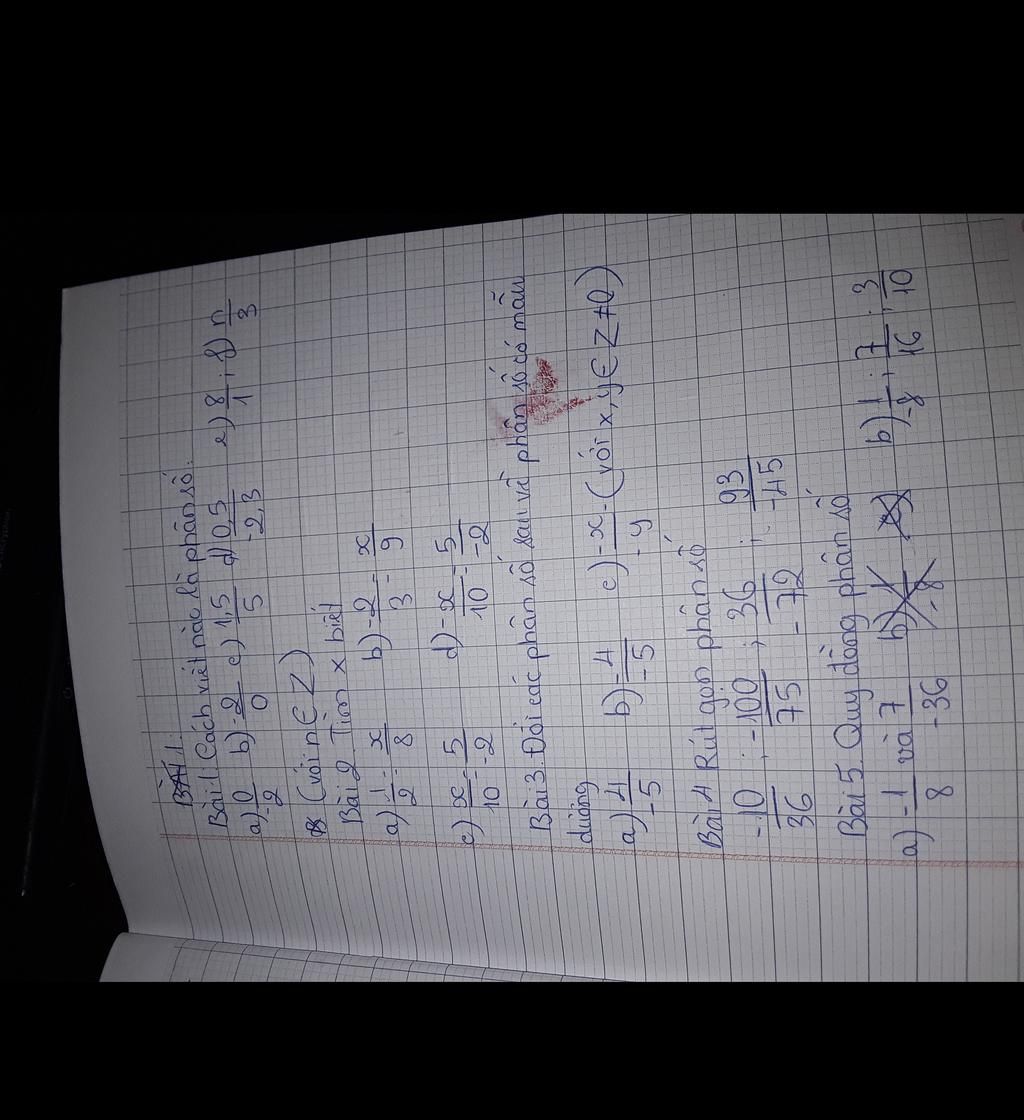 Bài 1 Cách viết nào là phân số.
a) 0/-2 b) -2/0 c) 1,5/5 d) 0,5/-2,3 e) 8/1 ; f) n/3
(với n ∈ Z)
Bài 2. Tìm x biết
a) -1/2 = x/8 b) -2/3 = x/9
c) x/10 = 5/-2 d) -x/10 = 5/-2
Bài 3. Đổi các phân số sau về phân số có mẫu
dương
a) 4/-5 b) -4/-5 c) -x/-y (với x, y ∈ Z ≠ 0)
Bài 4 Rút gọn phân số
-10/36 ; -100/75 ; 36/-72 ; 93/-45
Bài 5. Quy đồng phân số
a) -1/8 và 7/-36 b) 1/-8 ; 7/16 ; 3/10